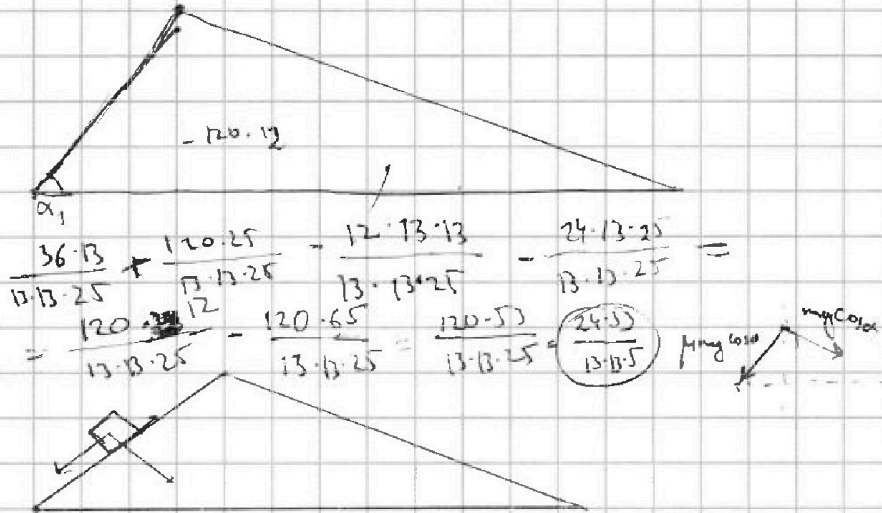 - 120 · 12
α₁
36·13/13·13·25 + 120·25/13·13·25 - 12·13·13/13·13·25 - 24·13·25/13·13·25 =
= 120·12/13·13·25 - 120·65/13·13·25 = 120-53/13·13·25 = 24·53/13·13·5
mg cosα
μmg cosα